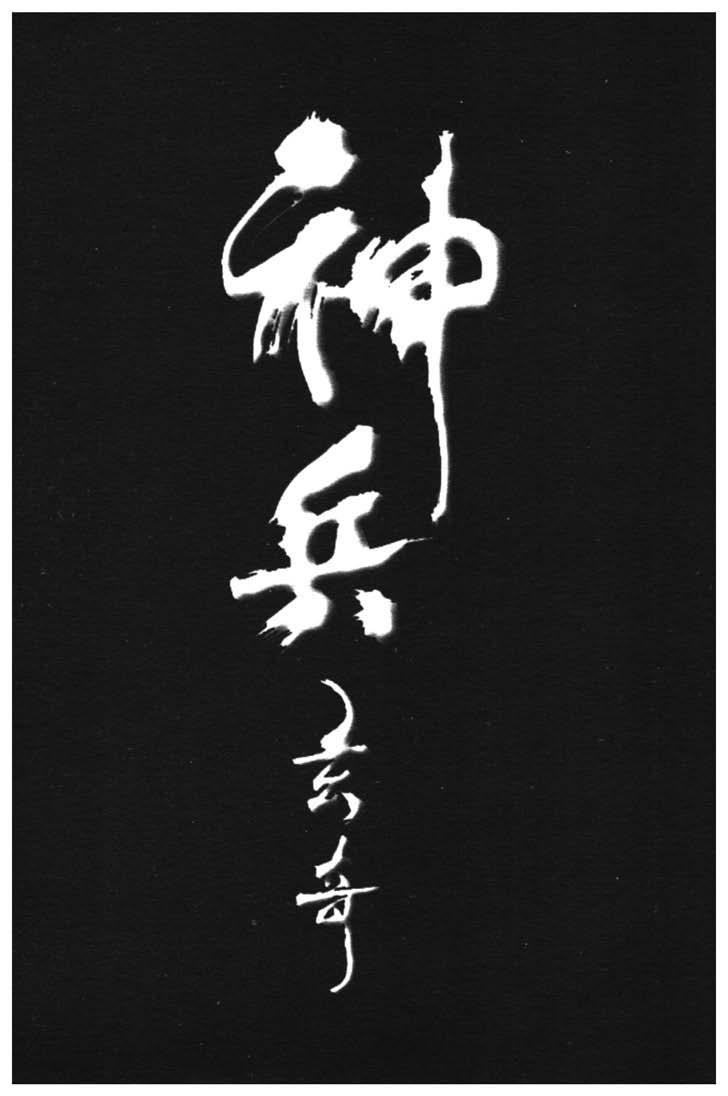 神兵
玄奇